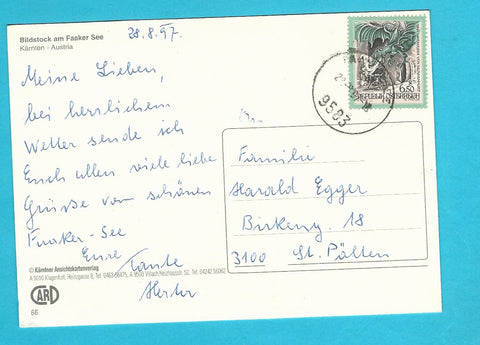 Bildstock am Faaker See
Kärnten - Austria
28.8.97.
Meine Lieben,
bei herrlichem
Wetter sende ich
Euch allen viele liebe
Grüße vom schönen
Faaker-See
Eure Tante
Herta
© Kärntner Ansichtskartenverlag
A 9010 Klagenfurt
CARD
66
6.50
REPUBLIK ÖSTERREICH
9583
Familie
Harald Egger
Birkeng. 18
3100 St. Pölten